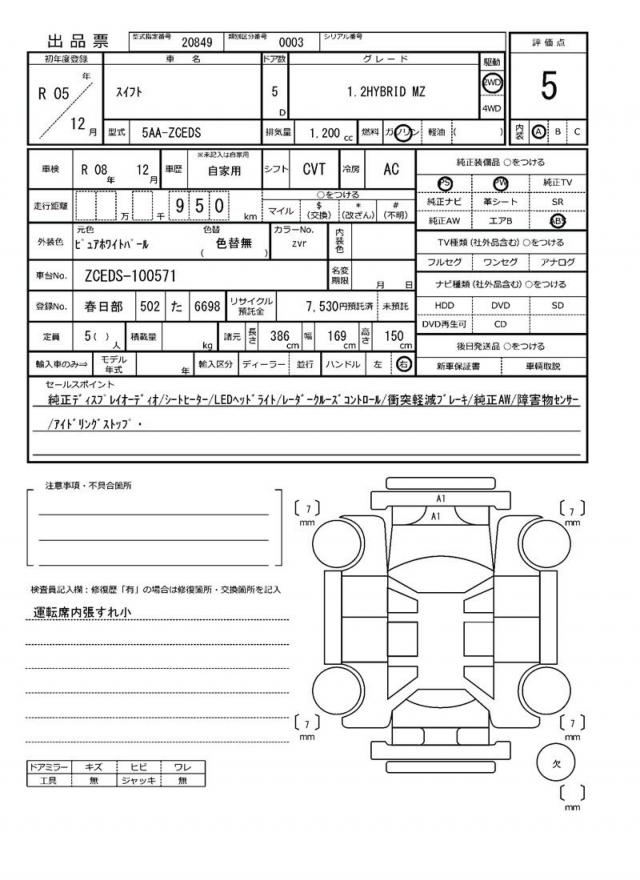 出品票 型式指定番号 20849 類別区分番号 0003 シリアル番号
評価点
初年度登録 車名 ドア数 グレード 駆動
R 05 年 12 月 スイフト 5 D 1.2HYBRID MZ 2WD 4WD 5
型式 5AA-ZCEDS 排気量 1.200 cc 燃料 ガソリン 軽油 ( ) 内装 A B C
車検 R 08 年 12 月 車歴 ※未記入は自家用 自家用 シフト CVT 冷房 AC
純正装備品 ○をつける
PS PW 純正TV
純正ナビ 革シート SR
純正AW エアB ABS
走行距離 万 千 9 5 0 km
○をつける
マイル $ (交換) * (改ざん) # (不明)
外装色 元色 ピュアホワイトパール 色替 ( 色替無 ) カラーNo. zvr 内装色
TV種類 (社外品含む) ○をつける
フルセグ ワンセグ アナログ
車台No. ZCEDS-100571 名変期限 月 日
ナビ種類 (社外品含む) ○をつける
登録No. 春日部 502 た 6698 リサイクル預託金 7,530円預託済 未預託
HDD DVD SD
DVD再生可 CD
定員 5( ) 人 積載量 kg 諸元 長さ 386 cm 幅 169 cm 高さ 150 cm
後日発送品 ○をつける
輸入車のみ⇒ モデル年式 年 輸入区分 ディーラー 並行 ハンドル 左 右
新車保証書 車輌取説
セールスポイント
純正ディスプレイオーディオ/シートヒーター/LEDヘッドライト/レーダークルーズコントロール/衝突軽減ブレーキ/純正AW/障害物センサー
/アイドリングストップ・
注意事項・不具合箇所
A1
A1
[ 7 ] mm
[ 7 ] mm
検査員記入欄：修復歴「有」の場合は修復箇所・交換箇所を記入
運転席内張すれ小
[ 7 ] mm
[ 7 ] mm
欠
[ ] mm
ドアミラー キズ ヒビ ワレ
工具 無 ジャッキ 無